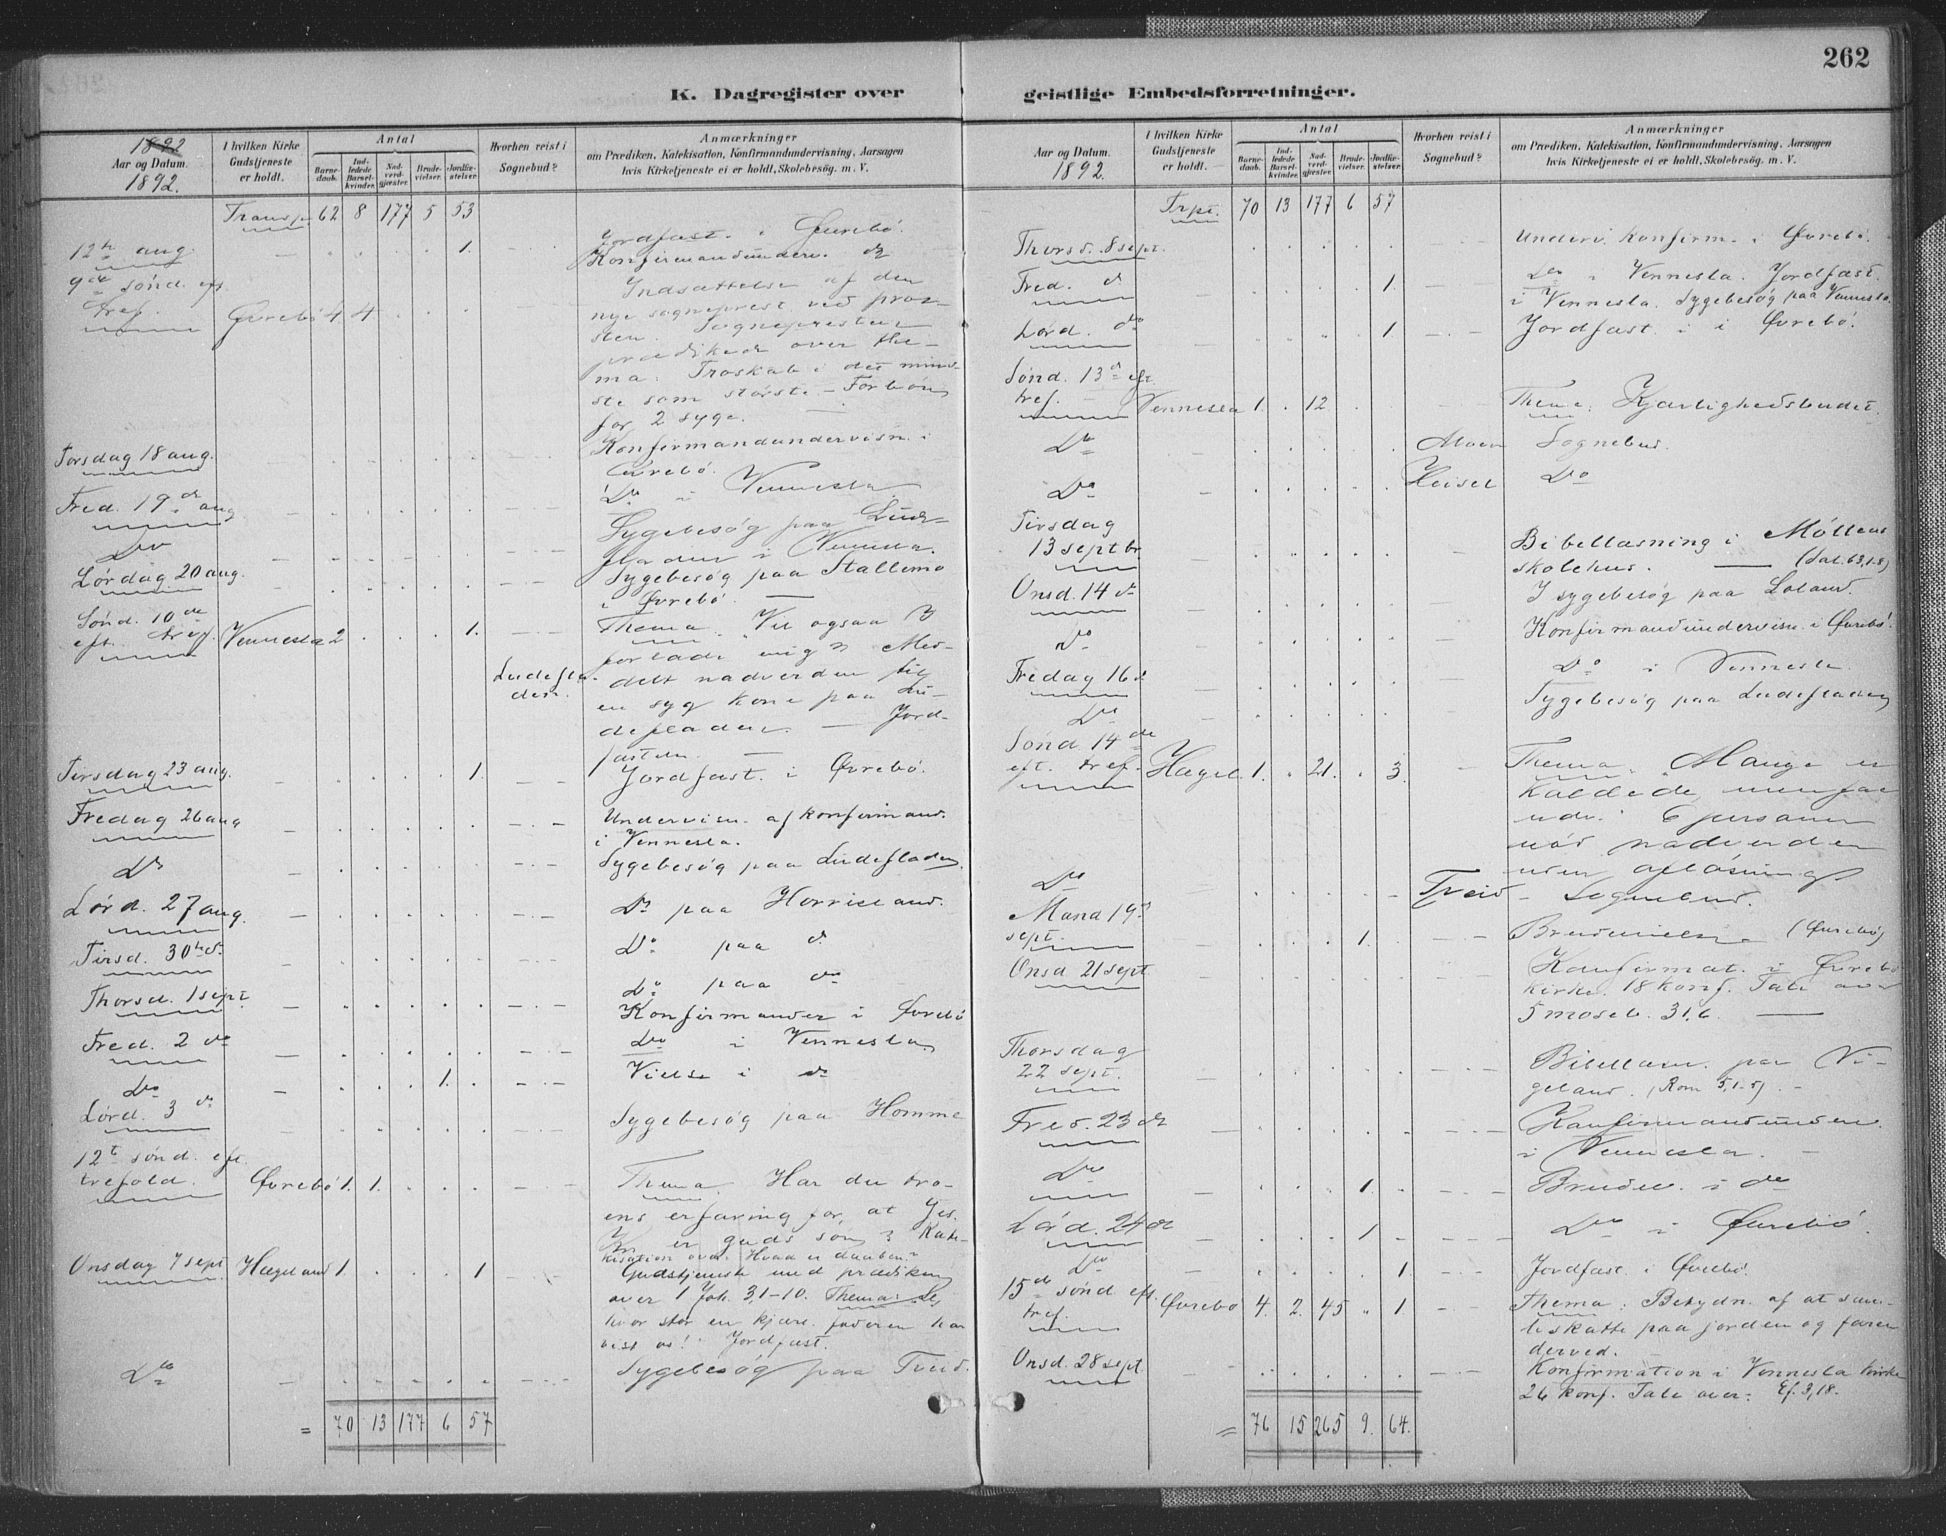 262
K. Dagregister over geistlige Embedsforretninger.
1892
Aar og Datum.
1892.
I hvilken Kirke
Gudstjeneste
er holdt.
Antal
Barne-
daab.
Ind-
ledede
Barsel-
kvinder.
Nad-
verd-
gjæster.
Brude-
vielser.
Jordfæ-
stelser.
Hvorhen reist i
Sognebud?
Anmærkninger
om Prædiken, Katekisation, Konfirmandundervisning, Aarsagen
hvis Kirketjeneste ei er holdt, Skolebesøg. m. V.
Transp. 62 8 177 5 53
12te aug. 1. Jordfast. i Øvrebø.
Konfirmandunderv. do
9de sønd. eft.
tref. Øvrebø 4 4 Indsættelse af den
nye sogneprest ved prov-
sten. Sognepresten
prædikede over the-
ma: Troskab i det mind-
ste som største. – Forbøn
for 2 syge.
Torsdag 18 aug. Konfirmandundervisn. i
Øvrebø.
Fred. 19de aug Do i Vennesla
Do Sygebesøg paa Lude-
fladen i Vennesla.
Lørdag 20 aug. Sygebesøg paa Stallemo
i Øvrebø.
Sønd. 10de
eft. tref. Vennesla 2 1. Thema: Vil ogsaa I
forlade mig? Med-
Ludefla-
den. delt nadverden til
en syg kone paa Lu-
defladen. – Jord-
fasten.
Tirsdag 23 aug. 1. Jordfast. i Øvrebø.
Fredag 26 aug Undervisn. af konfirmand.
i Vennesla.
Do Sygebesøg paa Ludefladen
Lørd. 27 aug. Do paa Horrisland.
Tirsd. 30te do Do paa do
Thorsd. 1 sept. Do paa do
Konfirmander i Øvrebø
Fred. 2 do Do i Vennesla
Do 1. Vielse i do
Lørd. 3 do Sygebesøg paa Homme
12te sønd. eft.
trefold. Øvrebø 1. 1. Thema: Har du tro-
ens erfaring for, at Jes.
er guds søn? Kate-
kisation over: Hvad er daaben?
Onsdag 7 sept Hægeland 1. 1 Gudstjeneste med prædiken
over 1 Joh. 3,1-10. Thema: Se,
hvor stor en kjærl. faderen har
vist os! Jordfast.
Do Sygebesøg paa Tveid.
= 70 13 177 6 57
Aar og Datum.
1892.
I hvilken Kirke
Gudstjeneste
er holdt.
Antal
Barne-
daab.
Ind-
ledede
Barsel-
kvinder.
Nad-
verd-
gjæster.
Brude-
vielser.
Jordfæ-
stelser.
Hvorhen reist i
Sognebud?
Anmærkninger
om Prædiken, Katekisation, Konfirmandundervisning, Aarsagen
hvis Kirketjeneste ei er holdt, Skolebesøg. m. V.
Trpt. 70 13 177 6 57
Thorsd. 8 sept. Underv. konfirm. i Øvrebø.
Fred. do 1 Do i Vennesla. Jordfast.
i Vennesla. Sygebesøg paa Vennesla.
Lørd. do 1 Jordfast. i Øvrebø.
Sønd. 13de eft.
tref. Vennesla 1. 12. Thema: Kjærlighedsbudet.
Do Moen Sognebud.
Do Heisel Do
Tirsdag
13 septbr. Bibellæsning i Møllens
skolehus. (Sal. 63,1-8)
Onsd. 14 do I sygebesøg paa Loland.
Do Konfirmandundervisn. i Øvrebø.
Fredag 16 do Do i Vennesla.
Do Sygebesøg paa Ludefladen
Sønd. 14de
eft. tref. Hægel. 1. 21. 3. Thema: Mange er
kaldede, men faa
udv. 6 personer
nød nadverden
uden afløsning.
Do Tveid Sognebud.
Mand 19de
sept. 1. Brudevielse (Øvrebø)
Onsd 21 sept. Konfirmat. i Øvrebø
kirke. 18 konf. Tale over
5 moseb. 31,6.
Thorsdag
22 sept. Bibellæsn. paa Vi-
geland. (Rom 5,1-5)
Fred. 23 do Konfirmandunderv.
i Vennesla.
Do 1. Brudev. i do
Lørd. 24 do 1 Do i Øvrebø.
Do 1. Jordfast. i Øvrebø.
15de sønd. eft.
tref. Øvrebø 4. 2. 45 1. Thema: Betydn. af at sam-
le skatte paa jorden og faren
derved.
Onsd. 28 sept. Konfirmation i Vennesla kirke
26 konf. Tale over: Ef. 3,18.
= 76 15 265 9. 64.